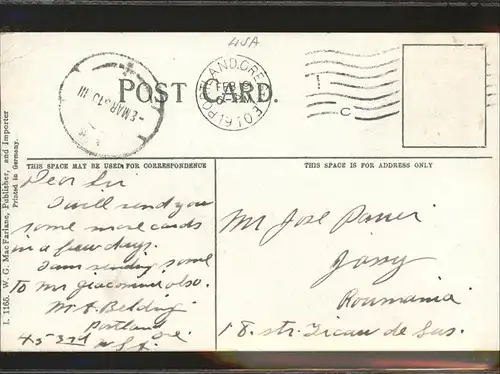 45A
POST CARD.
PORTLAND, ORE.
FEB 16
1910
-8 MAR 910 III
I
C
THIS SPACE MAY BE USED FOR CORRESPONDENCE
THIS SPACE IS FOR ADDRESS ONLY
I. 1165. W. G. MacFarlane, Publisher, and Importer
Printed in Germany.
Dear Sir
I will send you
some more cards
in a few days.
I am sending some
to Mr Giacomini also.
W. A. Belding
Portland
Ore.
45 3rd
Mr Jose
Jassy
Roumania
18. str.
de Sus.